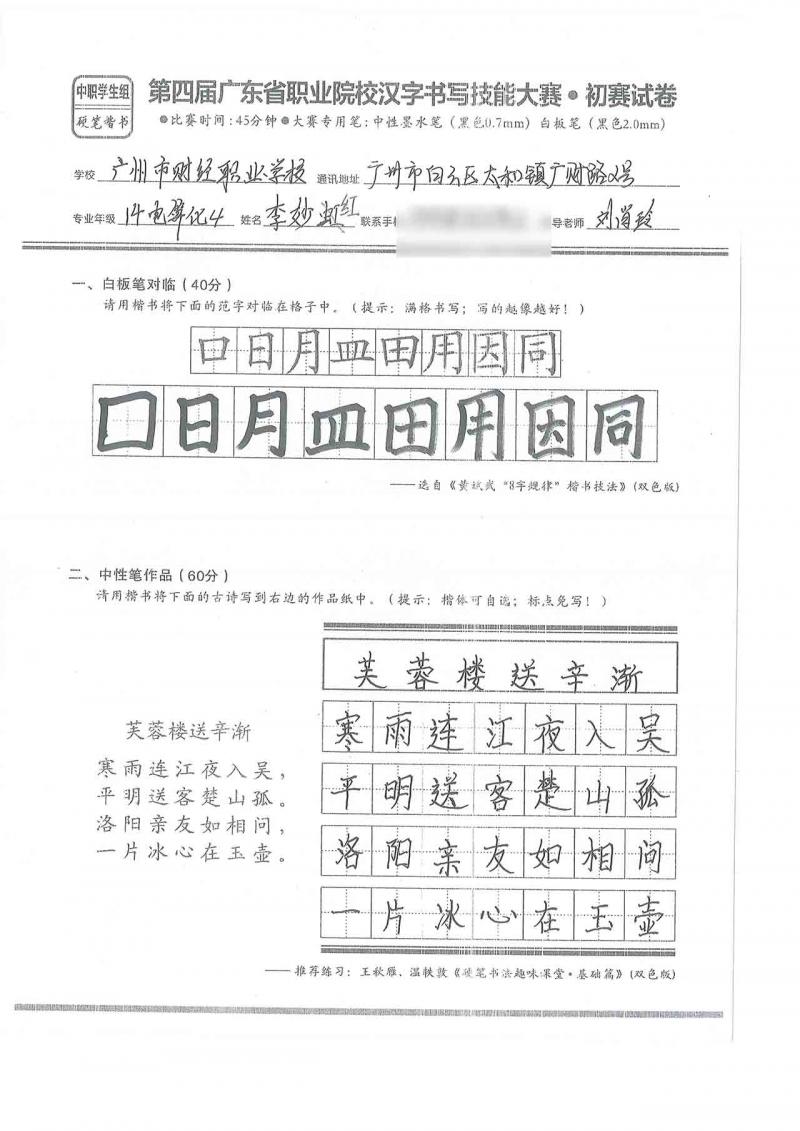 中职学生组
硬笔楷书
第四届广东省职业院校汉字书写技能大赛•初赛试卷
●比赛时间:45分钟●大赛专用笔:中性墨水笔(黑色0.7mm) 白板笔(黑色2.0mm)
学校 广州市财经职业学校 通讯地址 广州市白云区太和镇广财路2号
专业年级 14电算化4 姓名 李妙虹 红 联系手 导老师 刘肖玲
一、白板笔对临(40分)
请用楷书将下面的范字对临在格子中。(提示:满格书写;写的越像越好!)
口日月皿田用因同
口日月皿田用因同
——选自《黄斌武“8字规律”楷书技法》(双色版)
二、中性笔作品(60分)
请用楷书将下面的古诗写到右边的作品纸中。(提示:楷体可自选;标点免写!)
芙蓉楼送辛渐
寒雨连江夜入吴,
平明送客楚山孤。
洛阳亲友如相问,
一片冰心在玉壶。
芙蓉楼送辛渐
寒雨连江夜入吴
平明送客楚山孤
洛阳亲友如相问
一片冰心在玉壶
——推荐练习:王秋雁、温轶敦《硬笔书法趣味课堂·基础篇》(双色版)